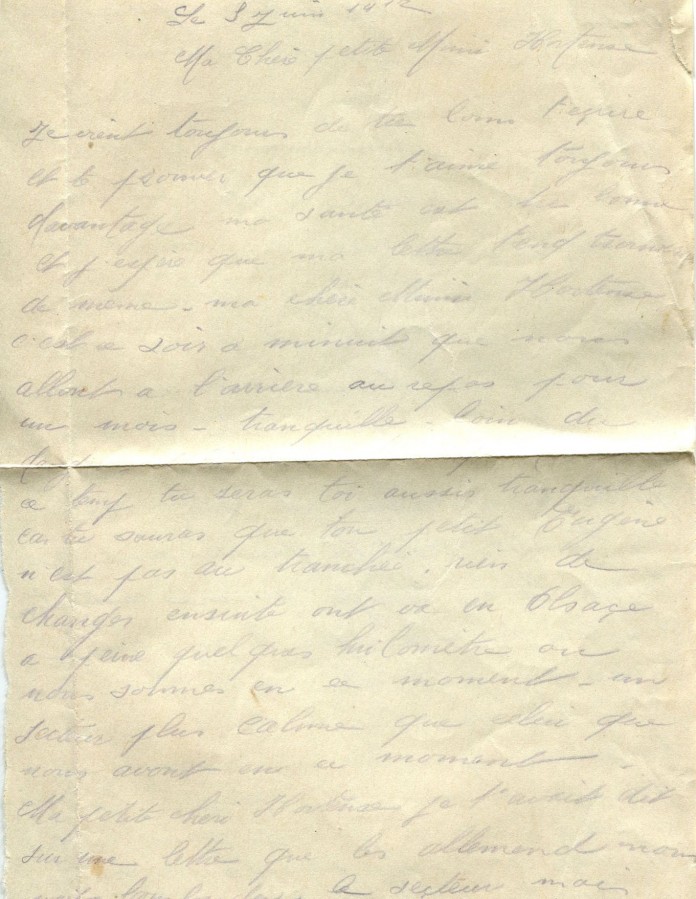 Le 3 Juin 191
Ma Chère petite Mimi Hortense
Je vient toujours de loins t'ecrire
et te prouver que je t'aime toujours
davantage ma santé est bonne
et j'espère que ma lettre trouvera
de meme - ma chère Mimi Hortense
c'est ce soir a minuit que nous
allont a l'arrière au repos pour
un mois - tranquille - loin du
ce temp tu seras toi aussi tranquille
car tu sauras que ton petit Eugène
n'est pas au tranchée. rien de
changer ensuite ont va en Alsace
a peine quelques kilomètre ou
nous sommes en ce moment - un
secteur plus calme que celui que
nous avont en ce moment -
Ma petite chéri Hortense je t'avait dit
sur une lettre que les allemend nous
le secteur mais